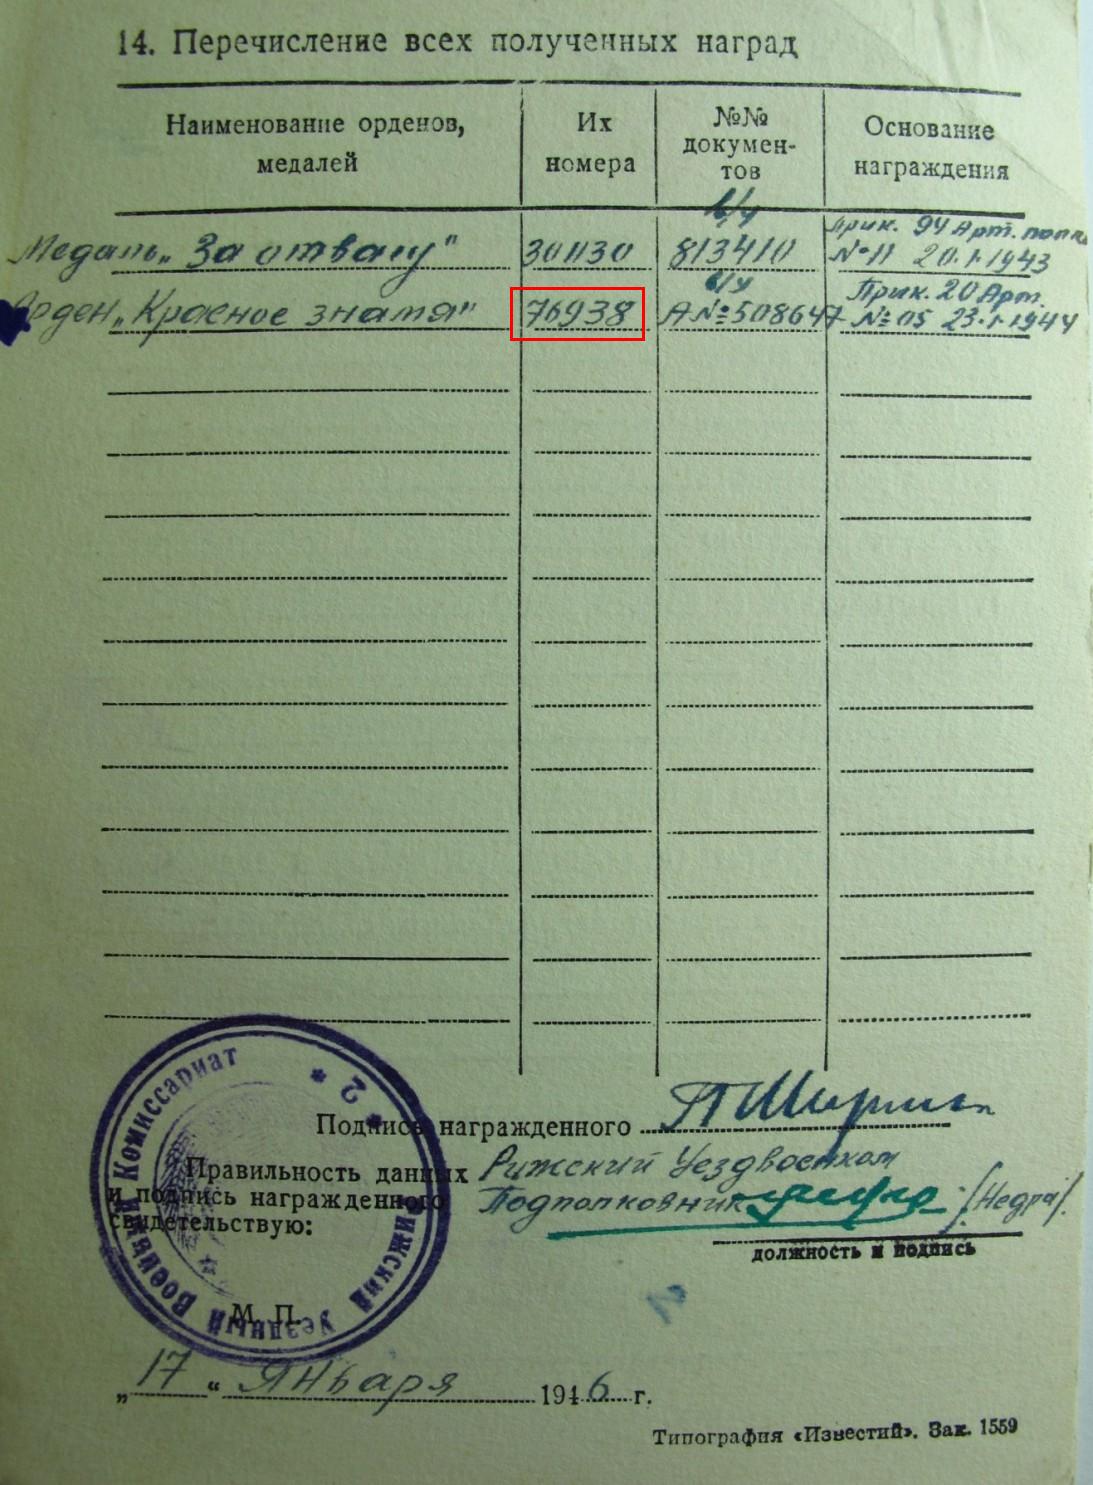 14. Перечисление всех полученных наград
Наименование орденов, медалей
Их номера
№№ документов
Основание награждения
Медаль „За отвагу"
301130
в/у 813410
Прик. 94 Арт. полка №11 20.1.1943
Орден „Красное знамя"
76938
в/у А №508647
Прик. 20 Арт. №05 23.1.1944
Подпись награжденного
Правильность данных
и подпись награжденного
свидетельствую:
Рижский Уездвоенком
Подполковник /Недра/.
должность и подпись
Рижский Уездный Военный Комиссариат * 2 *
М. П.
„17" Января 1946 г.
Типография «Известий». Зак. 1559